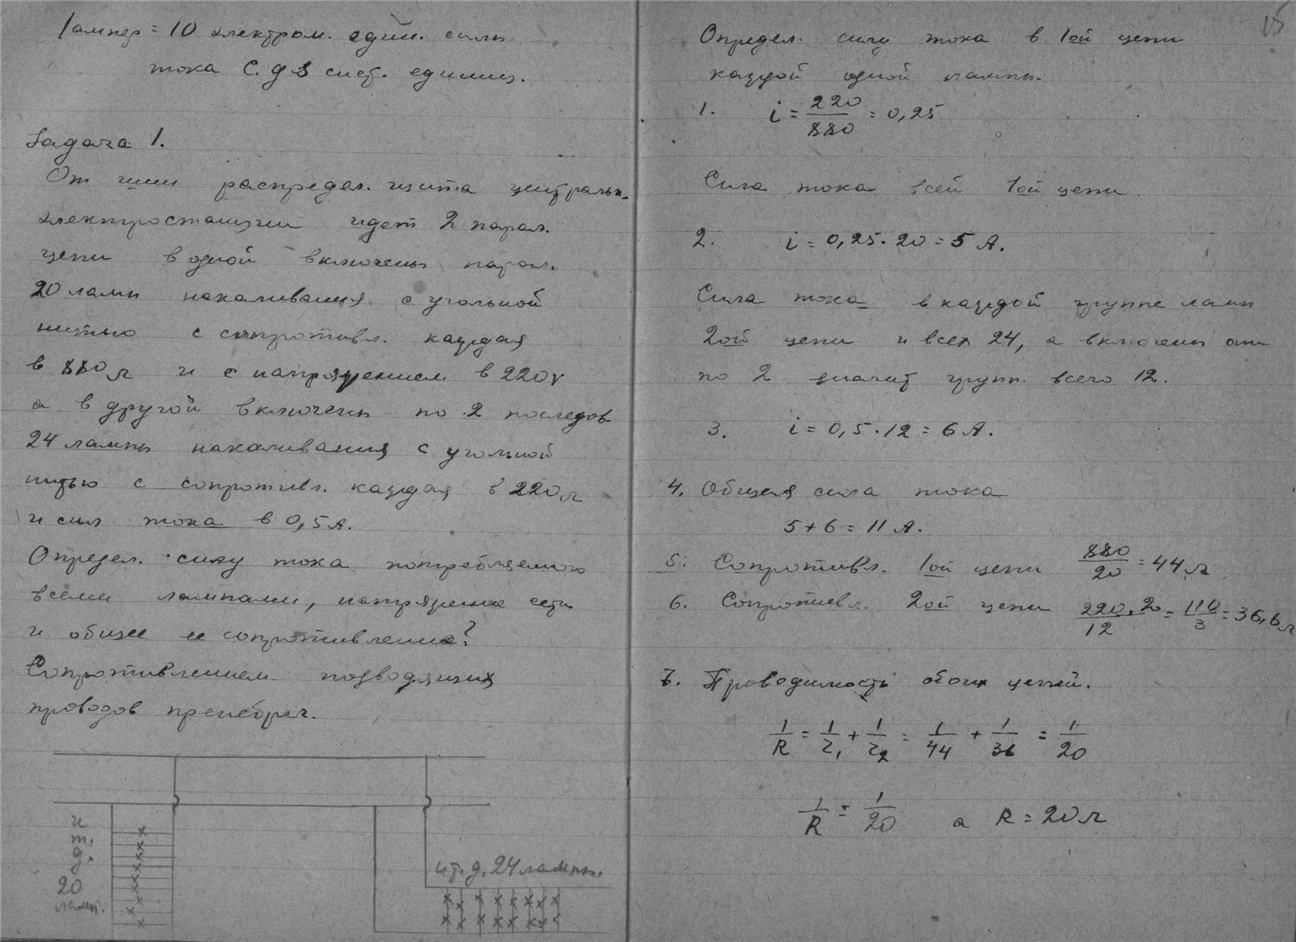 1 ампер = 10 электром. един. силы
тока C.g.S сист. единиц.
Задача 1.
От шин распредел. щита центральн.
электростанции идет 2 парал.
цепи в одной включены парал.
20 ламп накаливания с угольной
нитью с сопротивл. каждая
в 880 Ω и с напряжением в 220 V
а в другой включены по 2 последов
24 лампы накаливания с угольной
нитью с сопротивл. каждая в 220 Ω
и сил тока в 0,5 А.
Определ. силу тока потребляемого
всеми лампами, напряжение сети
и общее ее сопротивление?
Сопротивлением подводящих
проводов пренебреч.
и
т.
д.
20
ламп.
и т. д. 24 лампы.
15
Определ. силу тока в 1ой цепи
каждой одной лампы.
1. i = 220/880 = 0,25
Сила тока всей 1ой цепи.
2. i = 0,25 · 20 = 5 А.
Сила тока в каждой группе ламп
2ой цепи и всех 24, а включены они
по 2 значит групп. всего 12.
3. i = 0,5 · 12 = 6 А.
4. Общая сила тока
5 + 6 = 11 А.
5. Сопротивл. 1ой цепи 880/20 = 44 Ω
6. Сопротивл. 2ой цепи 220·20/12 = 110/3 = 36,6 Ω
7. Проводимость обоих цепей.
1/R = 1/r₁ + 1/r₂ = 1/44 + 1/36 = 1/20
1/R = 1/20 а R = 20 Ω